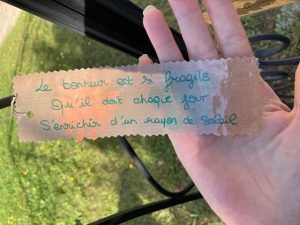 Le bonheur est si fragile
Qu'il doit chaque jour
S'enrichir d'un rayon de soleil